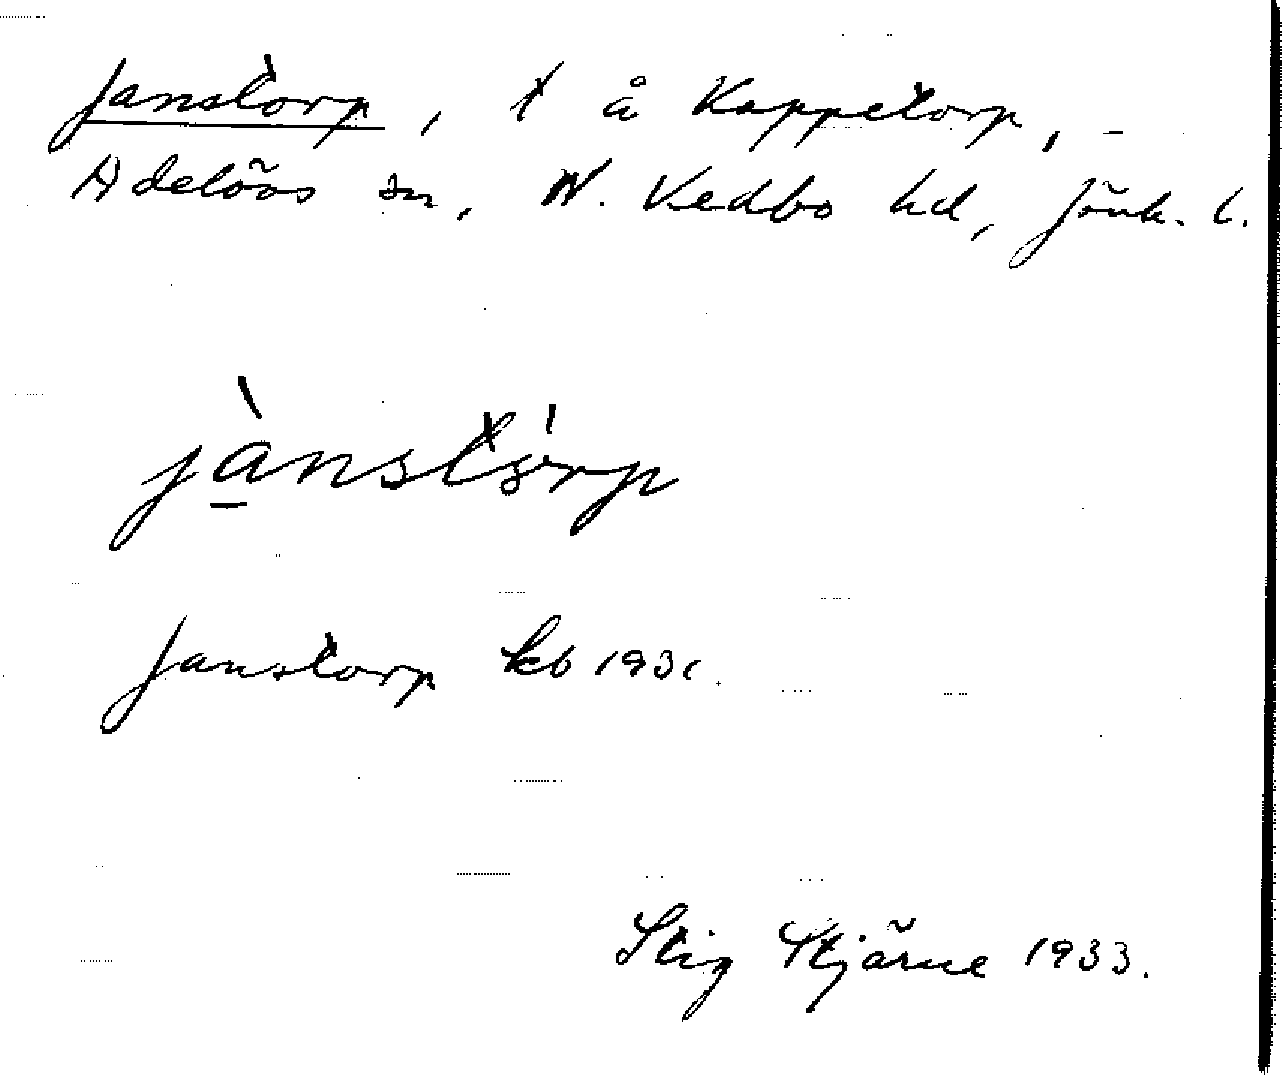 Janstorp, t å Kappetorp, -
Adelövs sn, N. Vedbo hd, Jönk. l.
jànstórp
Janstorp kb 1931.
Stig Stjärne 1933.